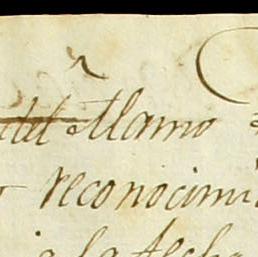 del Alamo
reconocimi
a la fecha